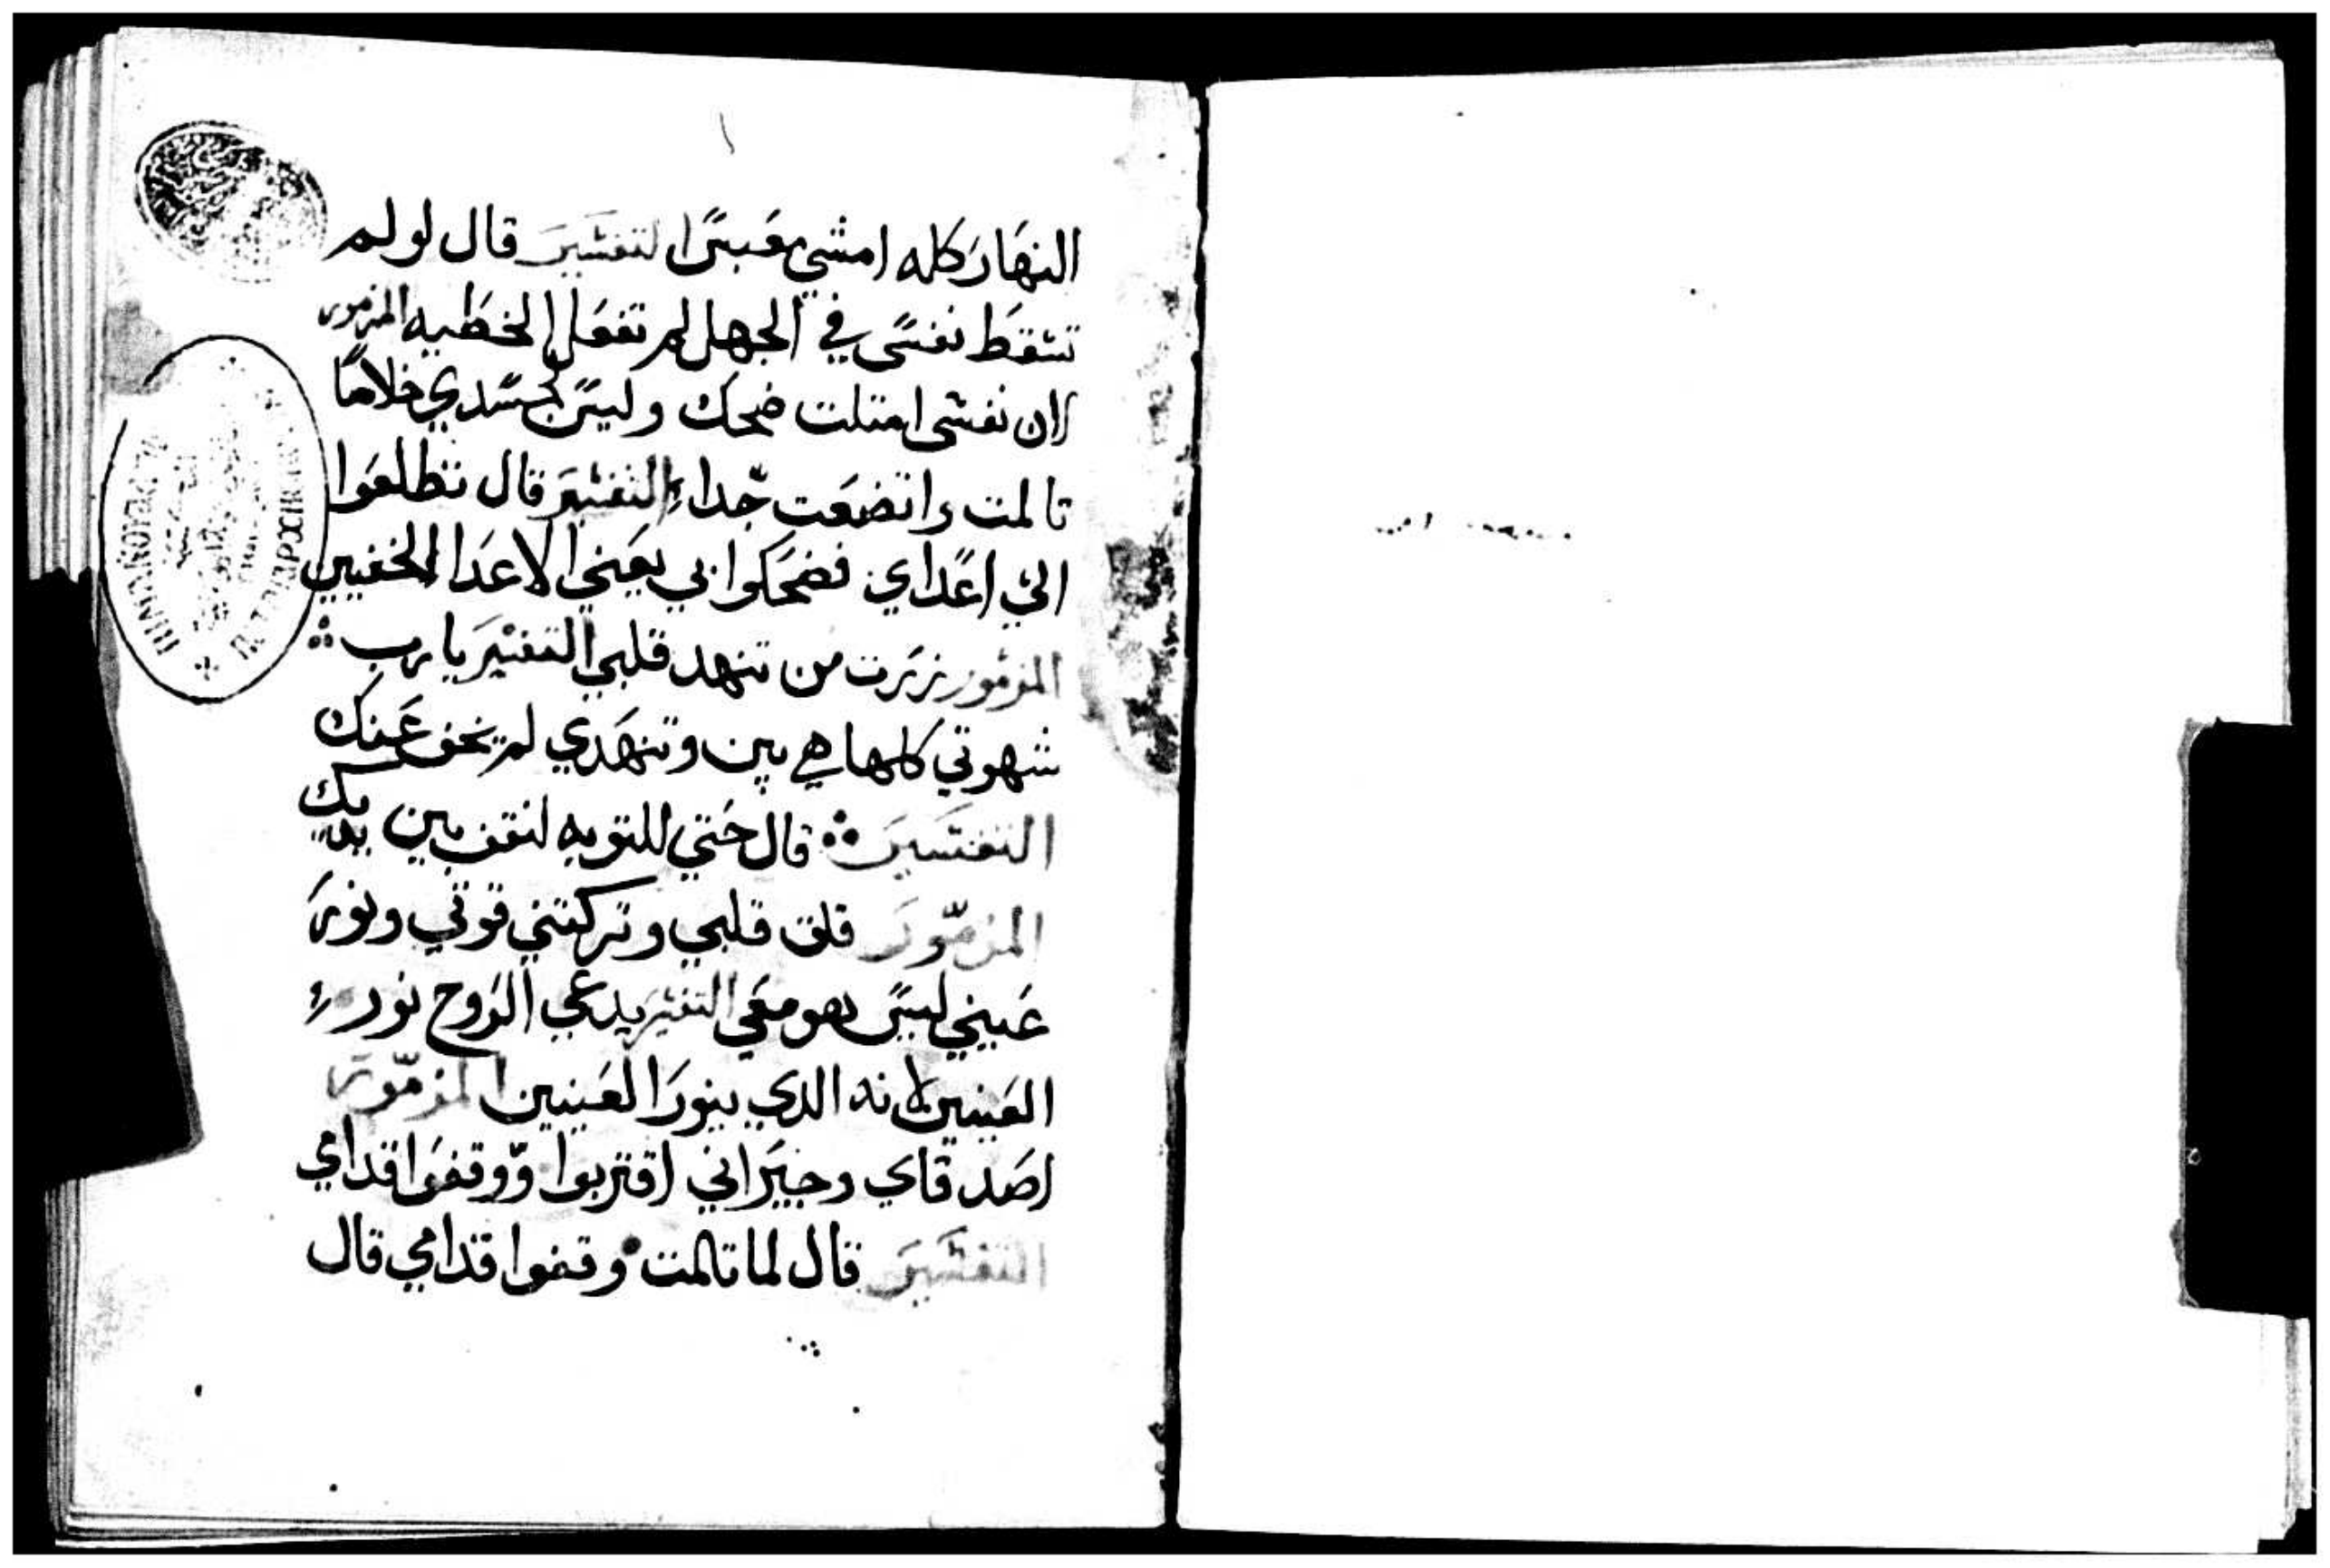 النهار كله امشي معبسًا التفسير قال لو لم
تسقط نفسي في الجهل لم تفعل الخطيه المزمور
ان نفسي امتلت ضحك وليس لجسدي خلاصا
تالمت واتضعت جدا التفسير قال تطلعوا
الي اعداي فضحكوا بي يعني الاعدا الخفيين
المزمور زيرت من تنهد قلبي التفسير يا رب
شهوتي كلها هي بين وتنهدي لم يخف عنك
التفسير قال حتي للتوبه لنقف بين يديك
المزمور قلق قلبي وتركتني قوتي ونور
عيني ليس هو معي التفسير يدعي الروح نور
العينين لانه الدي ينور العينين المزمور
اصدقاي وجيراني اقتربوا ووقفوا قدامي
التفسير قال لما تالمت وقفوا قدامي قال